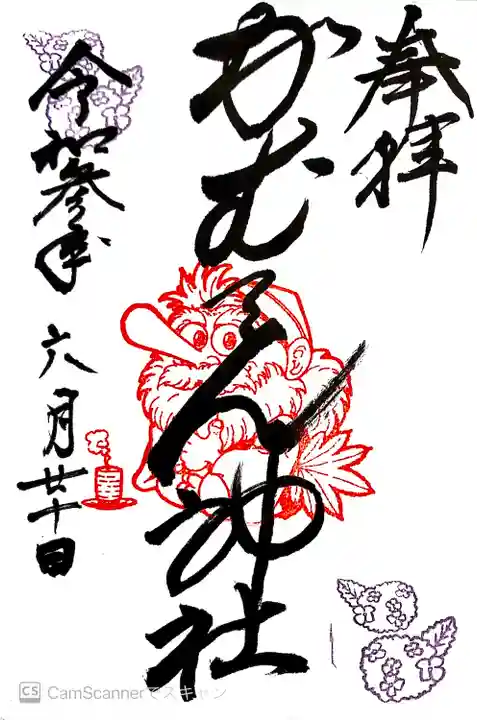 奉拝
かむてん神社
令和参年 六月廿十日
CS CamScannerでスキャン